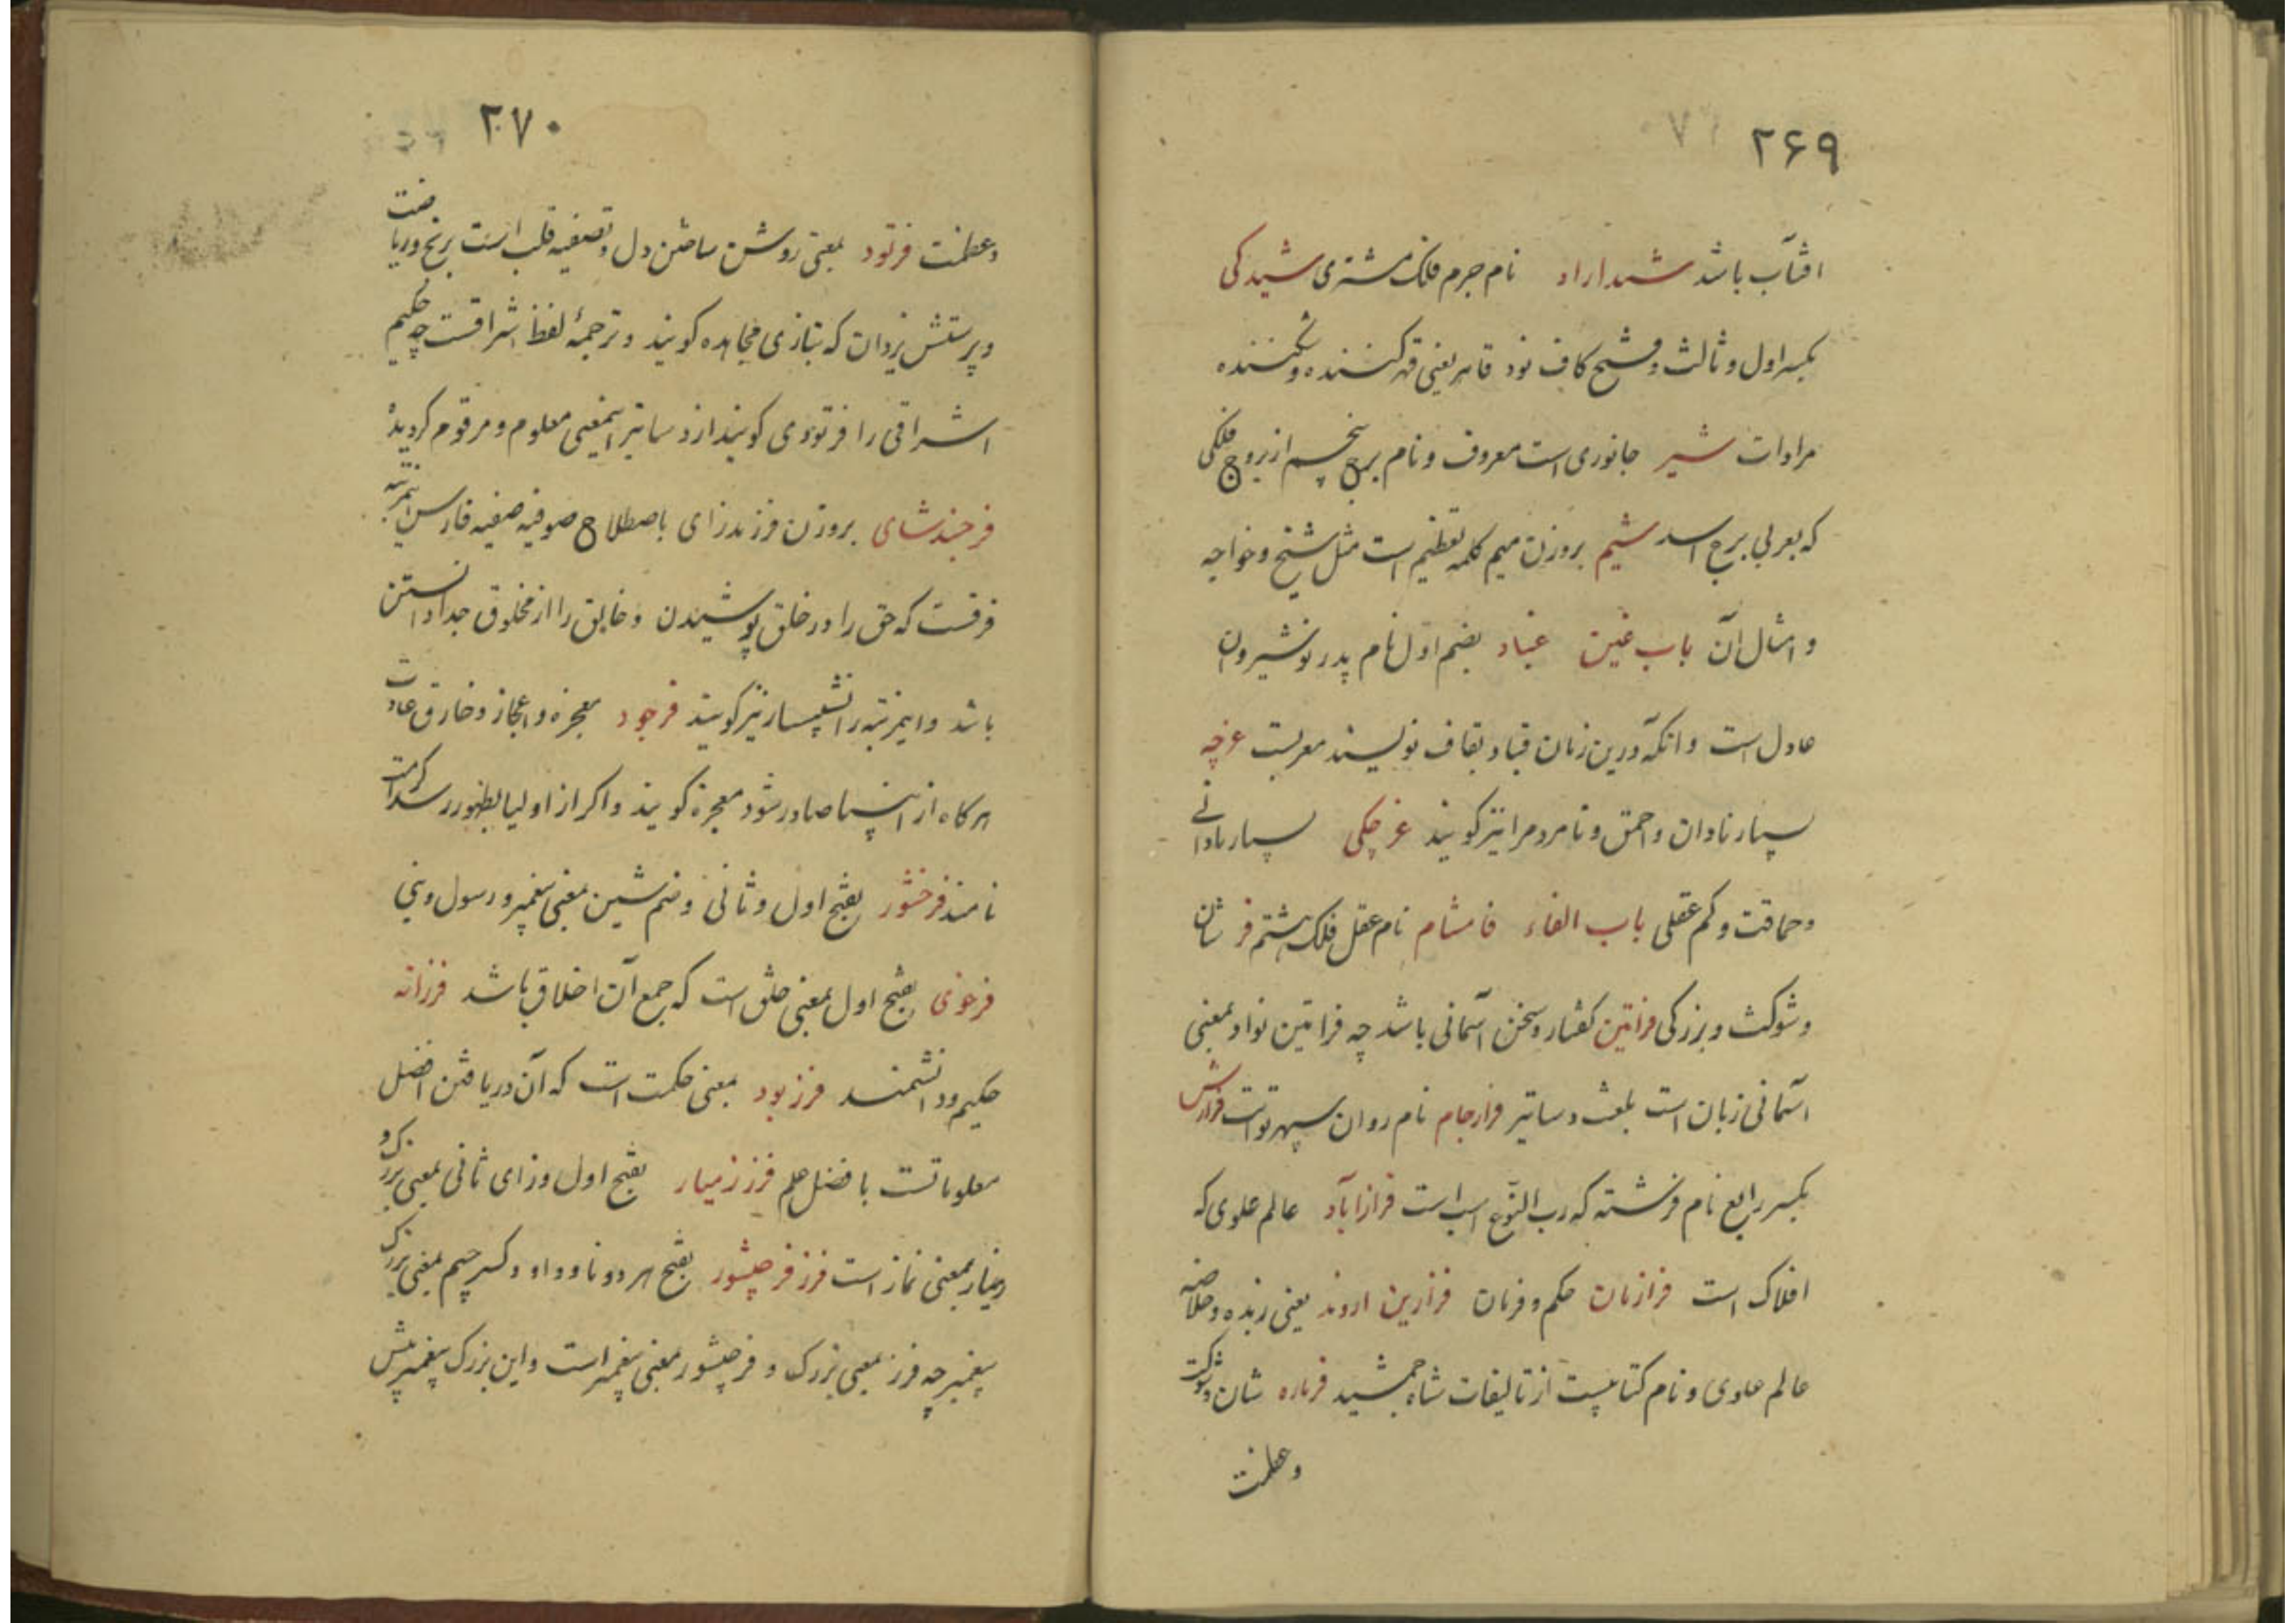 ۲۶۹
افتاب باشد شیداراد نام جرم فلک مشتری شیدکی
بکسر اول و ثالث و فتح کاف نود قاهر یعنی قهر کننده و شکننده
مرادات شیر جانوری است معروف و نام برج پنجم از بروج فلکی
که بعربی برج اسد شیم بروزن میم کلمه تعظیم است مثل شیخ و خواجه
و امثال آن باب غین غباد بضم اول نام پدر نوشیروان
عادل است و انکه درین زمان قباد بقاف نویسند معربست غرچه
بسیار نادان و احمق و نامرد مرا نیز کویند غرچکی بسیار نادانے
و حماقت و کم عقلی باب الفاء فامشام نام عقل فلک هشتم فر شان
و شوکت و بزرکی فراتین کفتار و سخن آسمانی باشد چه فراتین نواد بمعنی
آسمانی زبان است بلغت دساتیر فرارجام نام روان سپهر توانست فراراش
بکسر رابع نام فرشته که رب النوع اسب است فرازآباد عالم علوی که
افلاک است فرازمان حکم و فرمان فرازین اروند یعنی زبده و خلاصه
عالم علوی و نام کتابیست از تالیفات شاه جمشید فرباره شان و شوکت
و عظمت
۲۷۰
و عظمت فرتود بمعنی روشن ساختن دل و تصفیه قلب است برنج و ریاضت
و پرستش یزدان که بتازی مجاهده کویند و ترجمهٔ لفظ اشراقست چه حکیم
اشراقی را فرتودی کویند از دساتیر اینمعنی معلوم و مرقوم کردیده
فرجندشای بروزن فرزندزای باصطلاح صوفیه صفیه فارس اینمرتبه
فرقست که حق را در خلق پوشیدن و خالق را از مخلوق جدا دانستن
باشد و اینمرتبه را نشیمسار نیز کویند فرجود معجزه و اعجاز و خارق عادت
هرکاه از انبیا صادر شود معجزه کویند و اکر از اولیا بظهور رسد کرامت
نامند فرخشور بفتح اول و ثانی و ضم شین بمعنی پیغمبر و رسول و نبی
فرخوی بفتح اول بمعنی خلق است که جمع آن اخلاق باشد فرزانه
حکیم و دانشمند فرزبود بمعنی حکمت است که آن دریافتن افضل
معلوماتست بافضل علم فرززمیار بفتح اول و زای ثانی بمعنی بزرک و
زمیار بمعنی نماز است فرزفرجیشور بفتح هر دو فا و واو و کسر جیم بمعنی بزرک
پیغمبر چه فرز بمعنی بزرک و فرجیشور بمعنی پیغمبر است و این بزرک پیغمبر پیش